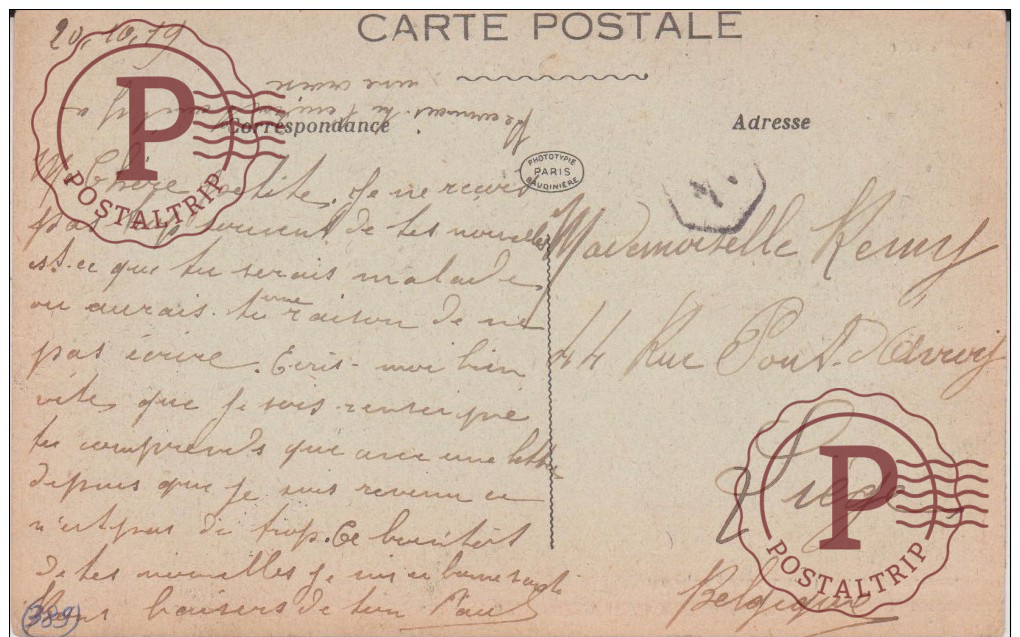 CARTE POSTALE
20.10.19
Correspondance
Adresse
PHOTOTYPIE
PARIS
BAUDINIÈRE
Chère petite. Je ne reçois
pas souvent de tes nouvelles
est-ce que tu serais malade
ou aurais-tu une raison de ne
pas écrire. Ecris-moi bien
vite, que je sois
tu comprends que avec une lettre
depuis que je suis revenu ce
n'est pas de trop.
de tes nouvelles je suis
baisers de ton Paul
Mademoiselle Remy
44 Rue Pont d'Avroy
Liége
Belgique
389
P
POSTALTRIP
P
POSTALTRIP